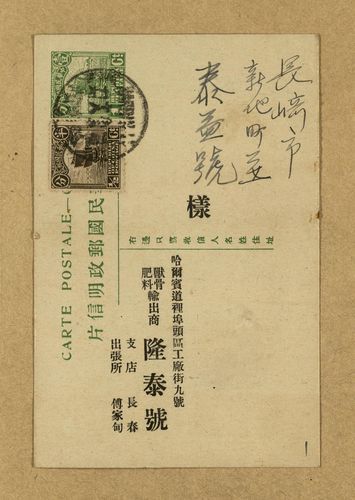 長崎市
新地町
泰益號
樣
右邊只寫收信人名姓住址
CARTE POSTALE
民國郵政明信片
哈爾賓道裡埠頭區工廠街九號
獸骨肥料輸出商
隆泰號
支店 長春
出張所 傅家甸